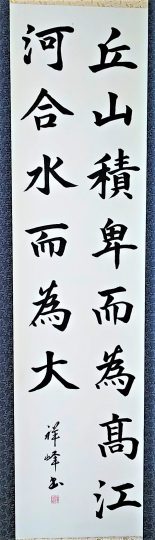 丘山積卑而為髙江
河合水而為大
祥峰書